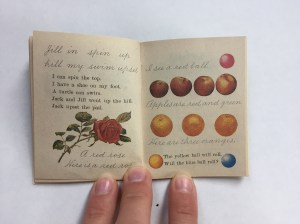 Jill in spin up
hill my swim upset
I can spin the top.
I have a shoe on my foot.
A turtle can swim.
Jack and Jill went up the hill.
Jack upset the pail.
A red rose
Here is a red
I see a red ball.
Apples are red and green
Here are three oranges.
The yellow ball will roll.
Will the blue ball roll?